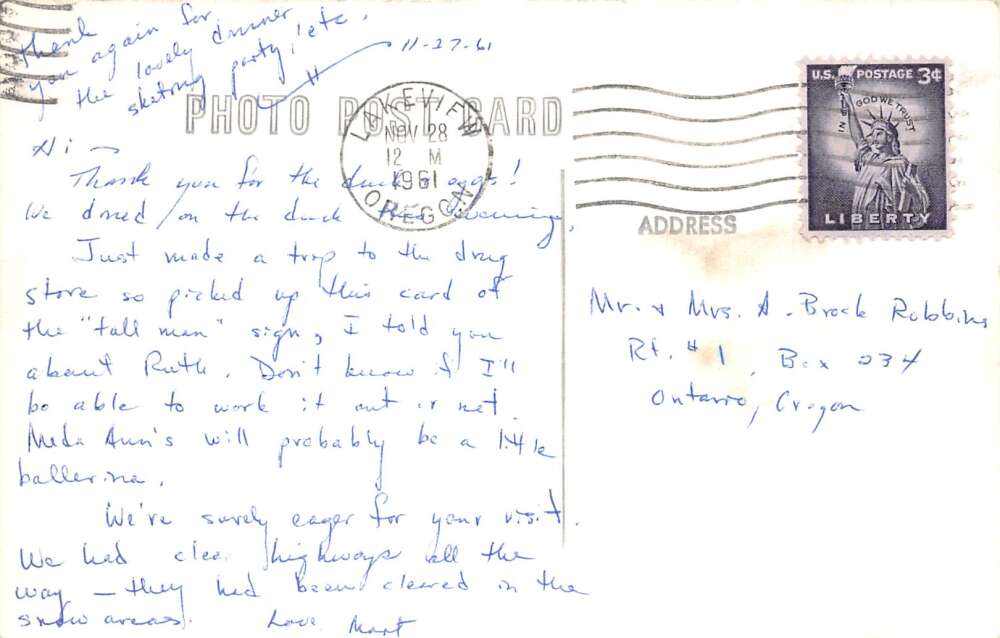 thank
you again for
the lovely dinner
skating party, etc.
11-27-61
PHOTO POST CARD
LAKEVIEW
NOV 28
12 M
1961
OREGON
U.S. POSTAGE 3¢
IN GOD WE TRUST
LIBERTY
ADDRESS
Hi —
Thank you for the duck & eggs!
We dined on the duck this evening.
Just made a trip to the drug
store so picked up this card of
the "tall man" sign, I told you
about Ruth. Don't know if I'll
be able to work it out or not.
Meda Ann's will probably be a little
ballerina.
We're surely eager for your visit.
We had clear highways all the
way — they had been cleared in the
snow areas. Love Mart
Mr. & Mrs. A. Brock Robbins
Rt. #1, Box 234
Ontario, Oregon